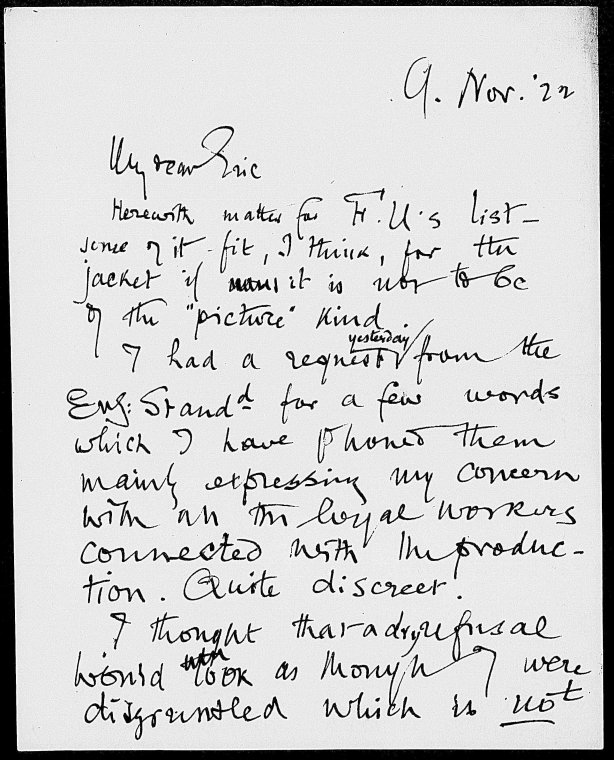 9. Nov. '22
My dear Eric
Herewith matter for F. U's list -
some of it fit, I think, for the
jacket if it is not to be
of the "picture" kind
I had a request yesterday from the
Evg: Standd for a few words
which I have phoned them
mainly expressing my concern
with all the loyal workers
connected with the produc-
tion. Quite discreet.
I thought that a dry refusal
would look as though I were
disgruntled which is not